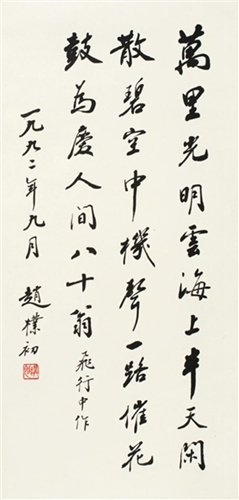 萬里光明雲海上半天閑
散碧空中機聲一路催花
鼓為慶人間八十翁 飛行中作
一九九二年九月 趙樸初